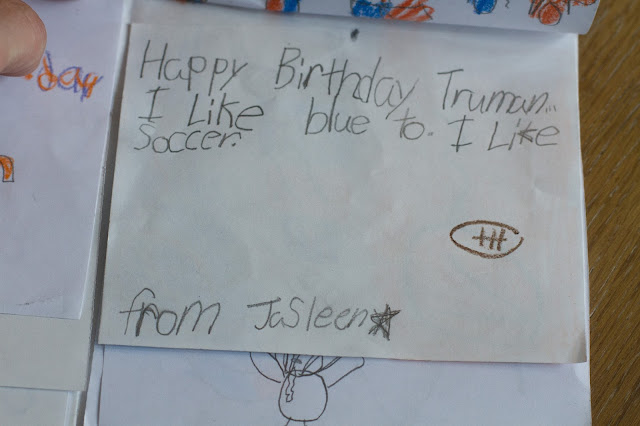 Happy Birthday Truman...
I Like blue to. I Like
Soccer.
from Jasleen
day